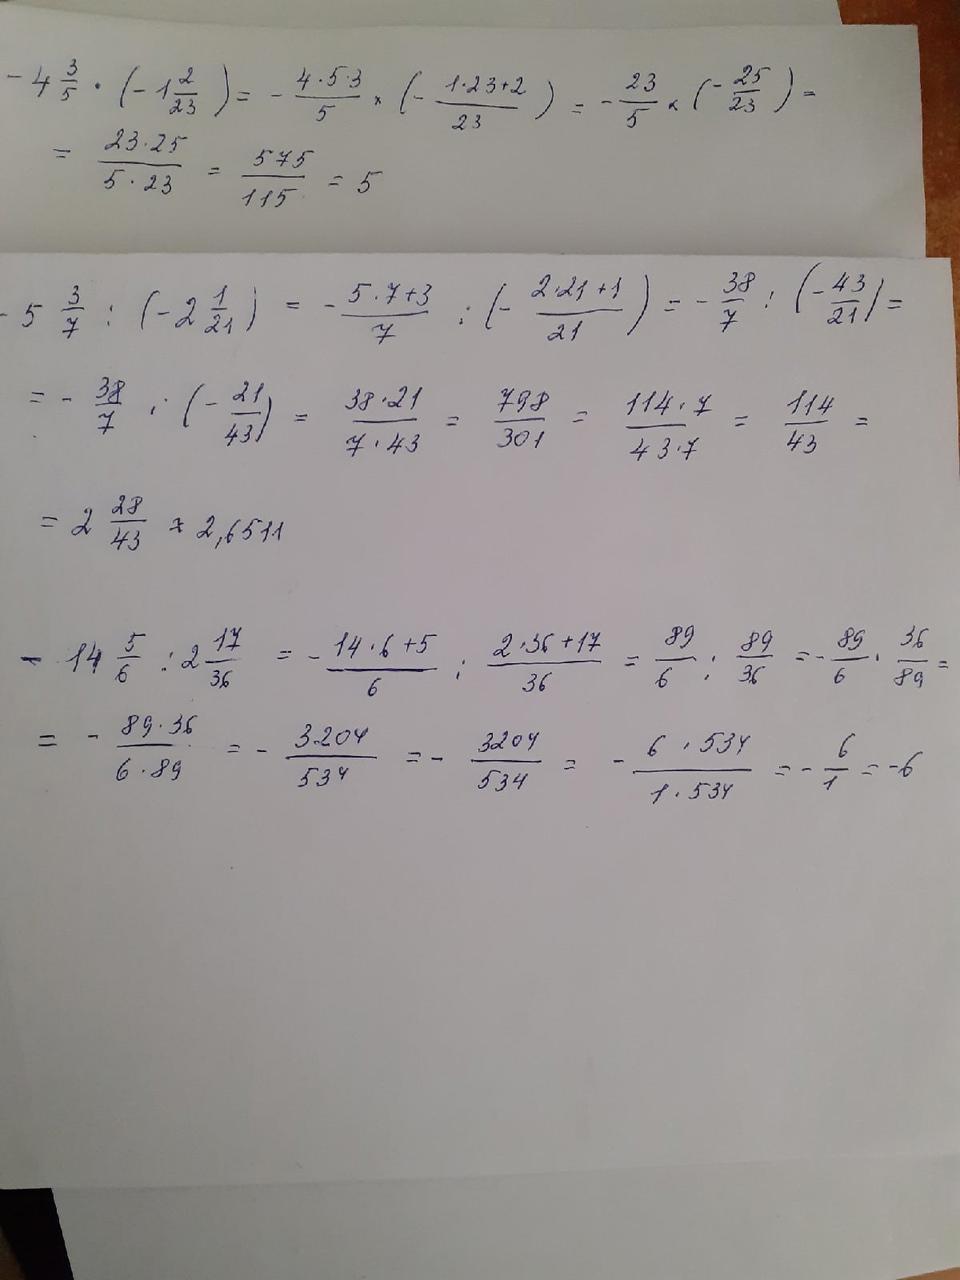 -4 3/5 · (-1 2/23) = - 4·5·3/5 × (- 1·23+2/23) = - 23/5 × (- 25/23) =
= 23·25/5·23 = 575/115 = 5
-5 3/7 : (-2 1/21) = - 5·7+3/7 : (- 2·21+1/21) = - 38/7 : (- 43/21) =
= - 38/7 : (- 21/43) = 38·21/7·43 = 798/301 = 114·7/43·7 = 114/43 =
= 2 28/43 ≈ 2,6511
- 14 5/6 : 2 17/36 = - 14·6+5/6 : 2·36+17/36 = 89/6 : 89/36 = - 89/6 · 36/89 =
= - 89·36/6·89 = - 3204/534 = - 3204/534 = - 6·534/1·534 = - 6/1 = -6